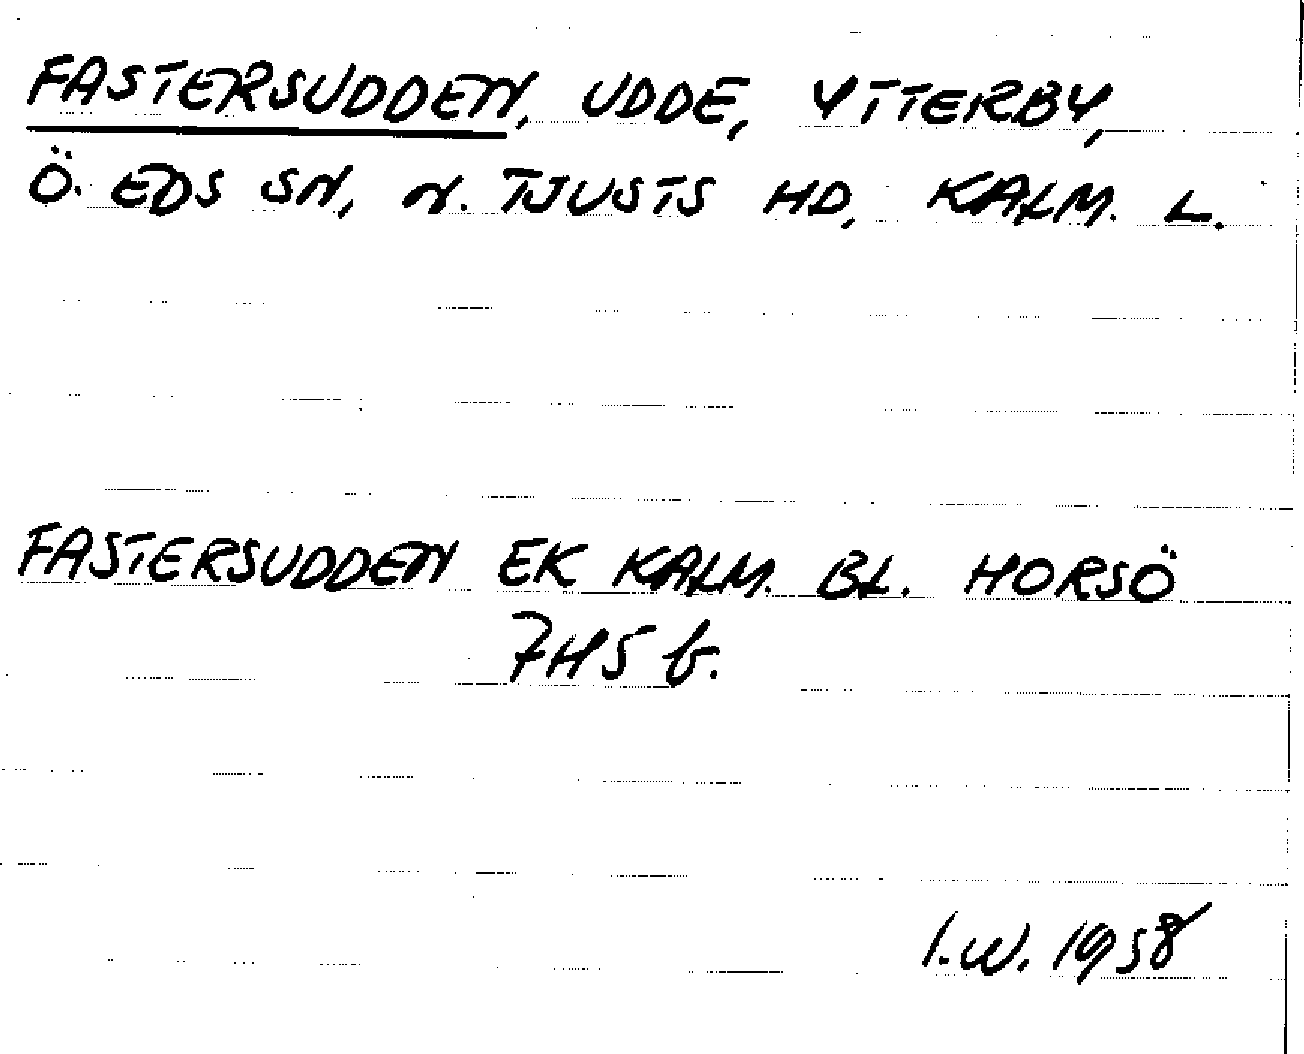 FASTERSUDDEN, UDDE, YTTERBY,
Ö. EDS SN, N. TJUSTS HD, KALM. L.
FASTERSUDDEN EK KALM. BL. HORSÖ
7H5 b.
I.W. 1958